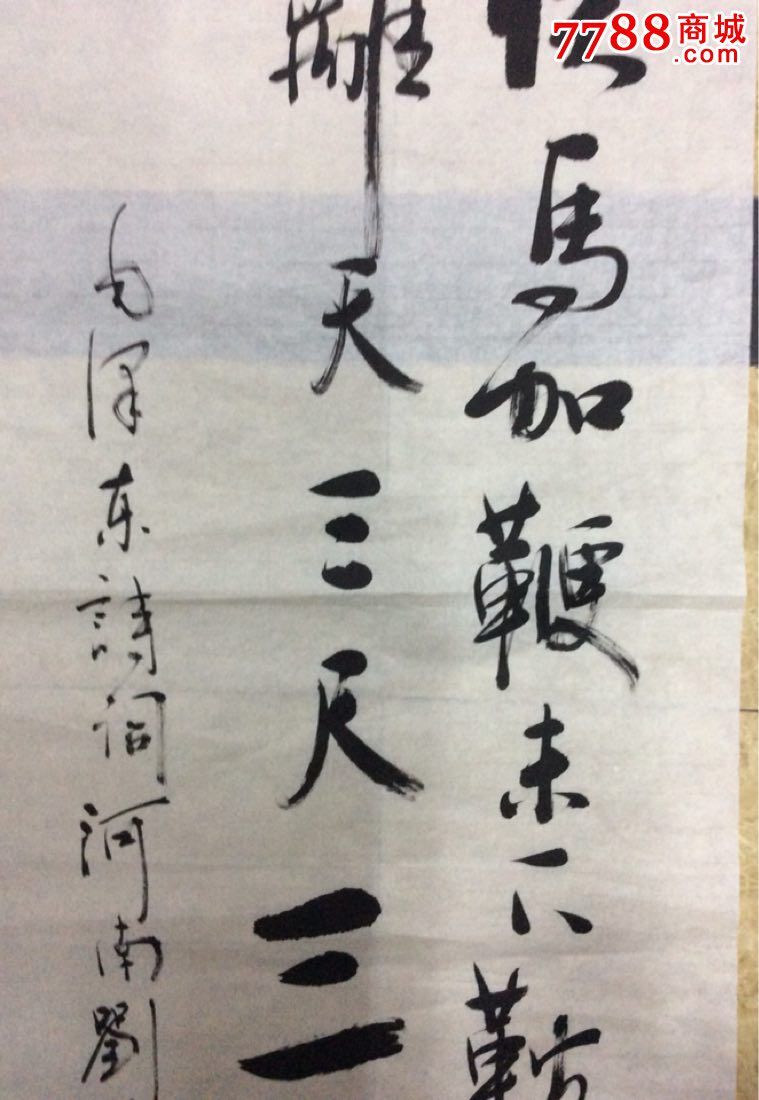 7788商城
.com
快馬加鞭未下鞍
離天三尺三
毛澤东詩詞河南劉